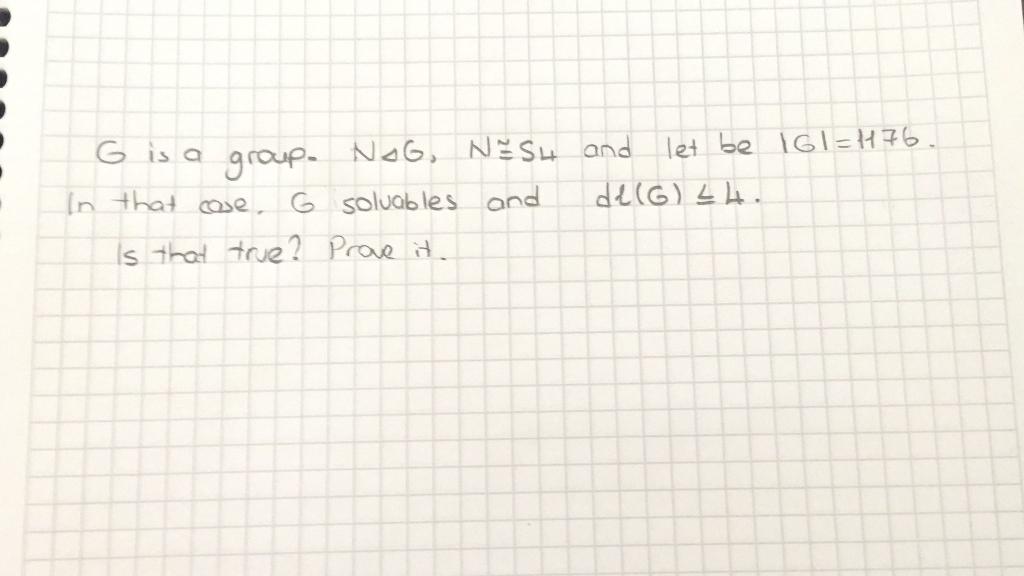 G is a group. N⊲G, N≅S4 and let be |G|=1176.
In that case, G soluables and dl(G) ≤ 4.
Is that true? Prove it.